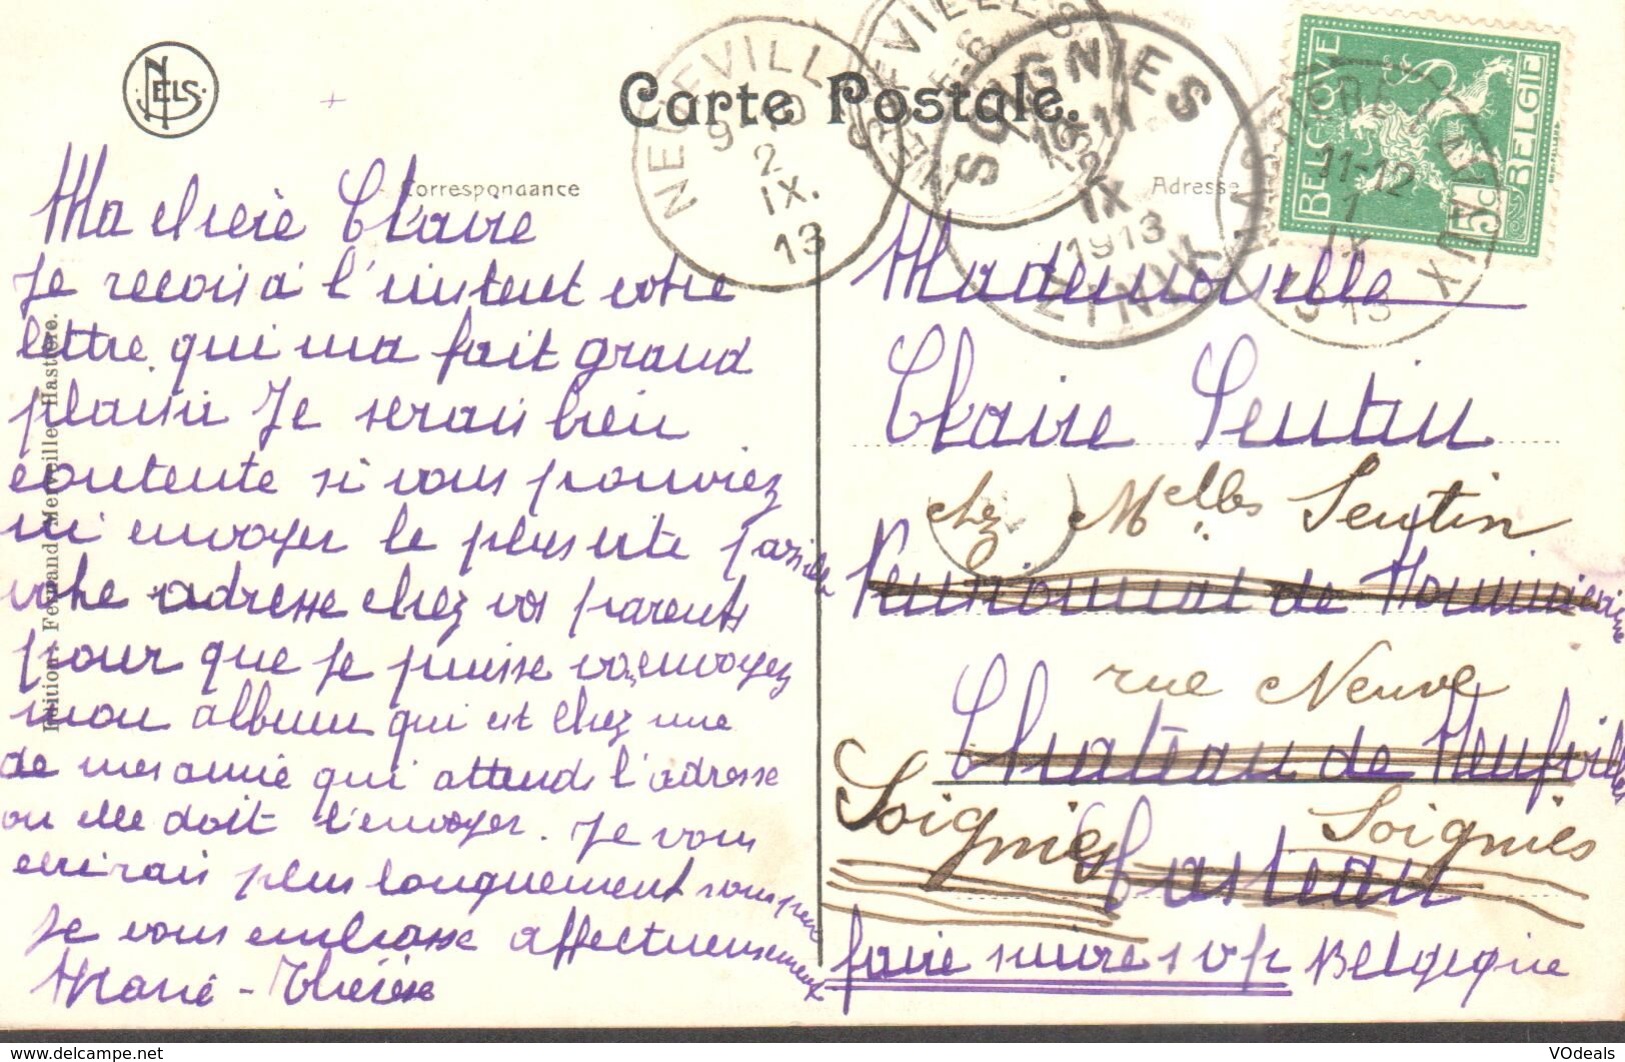 NELS
Carte Postale.
Correspondance
Adresse
NEUFVILL
9 10
2
IX.
13
SOIGNIES
10-11
2
IX
1913
ZINNIK
11-12
1
IX
13
BELGIQUE
BELGIË
5c
Edition - Fernand Merveille, Hastière.
Ma chère Claire
Je reçois à l'instent votre
lettre qui ma fait grand
plaisir Je serais bien
contente si vous pouviez
m'envoyer le plus vite possible
votre adresse chez vos parents
pour que je puisse envoyez
mon album qui est chez une
de mes amie qui attend l'adresse
ou elle doit l'envoyer. Je vous
écrirais plus longuement sous peu
Je vous embrasse affectueusement
Marie-Thérèse
Mademoiselle
Claire Sentin
chez Melles Sentin
Pensionnat de
rue Neuve
Château de Neufvilles
Soignies Soignies
Casteau
faire suivre s v p Belgique
VDeals
https://www.delcampe.net